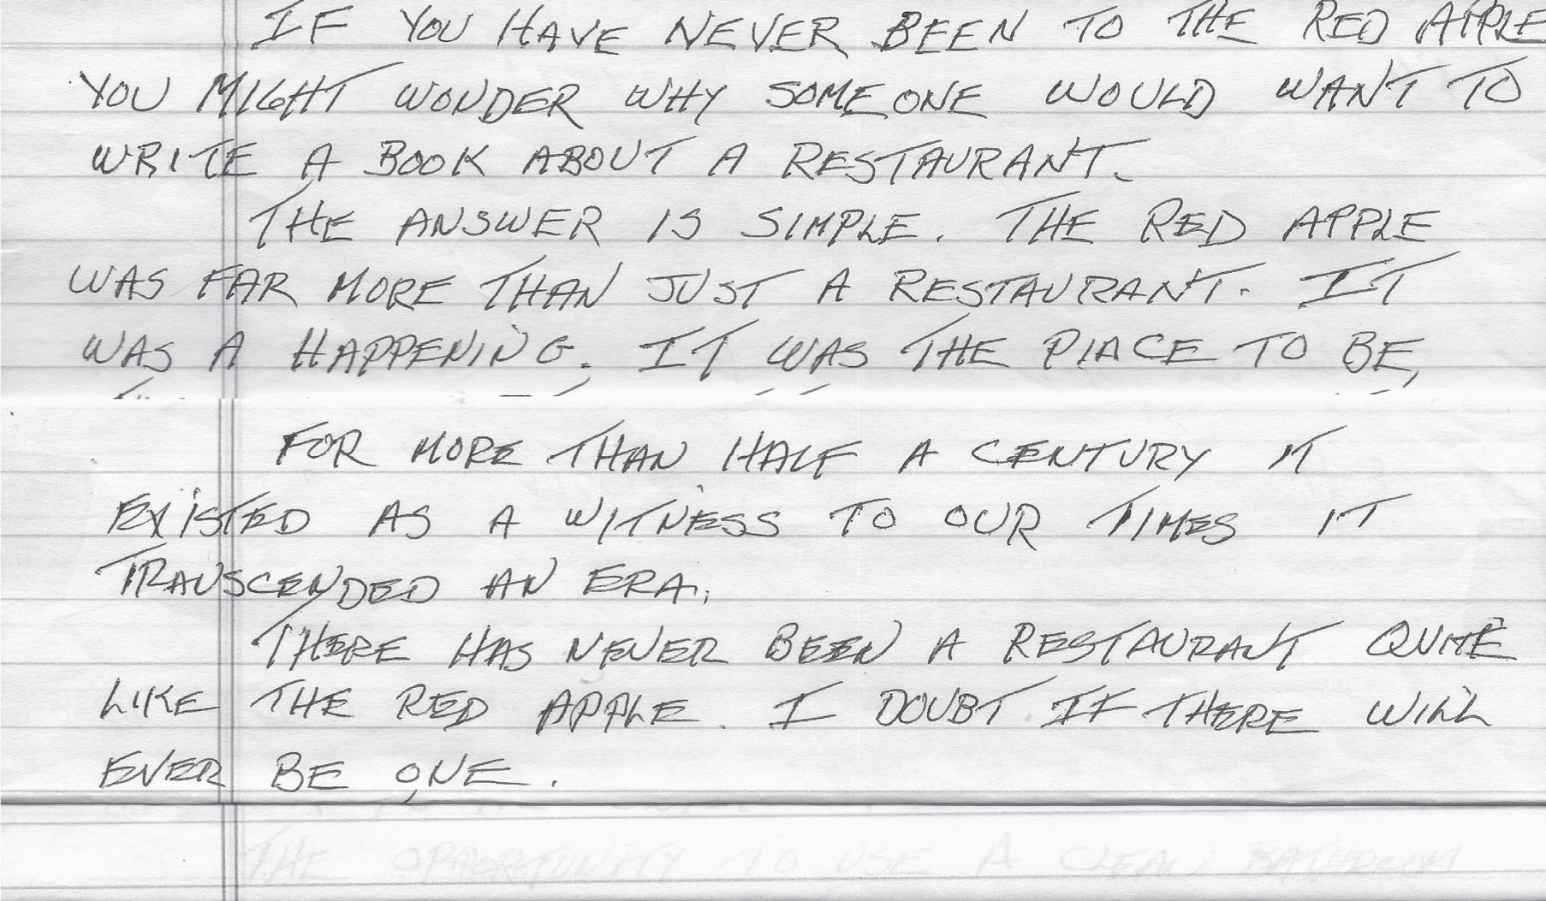 IF YOU HAVE NEVER BEEN TO THE RED APPLE
YOU MIGHT WONDER WHY SOMEONE WOULD WANT TO
WRITE A BOOK ABOUT A RESTAURANT.
THE ANSWER IS SIMPLE. THE RED APPLE
WAS FAR MORE THAN JUST A RESTAURANT. IT
WAS A HAPPENING. IT WAS THE PLACE TO BE,
FOR MORE THAN HALF A CENTURY IT
EXISTED AS A WITNESS TO OUR TIMES IT
TRANSCENDED AN ERA.
THERE HAS NEVER BEEN A RESTAURANT QUITE
LIKE THE RED APPLE. I DOUBT IF THERE WILL
EVER BE ONE.
THE OPPORTUNITY TO USE A CLEAN BATHROOM